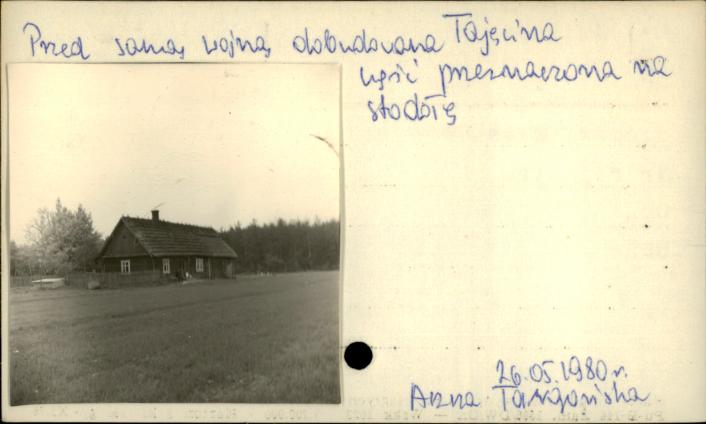 Przed samą wojną dobudowana Tajęcina
część przeznaczona na
stodołę
26.05.1980 r.
Anna Targońska